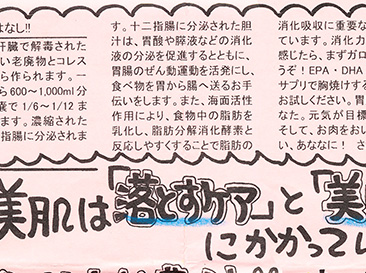 はなし!!
肝臓で解毒された
い老廃物とコレス
ら作られます。一
ら600〜1,000ml分
嚢で1/6〜1/12ま
ます。濃縮された
指腸に分泌されま
す。十二指腸に分泌された胆
汁は、胃酸や膵液などの消化
液の分泌を促進するとともに、
胃腸のぜん動運動を活発にし、
食べ物を胃から腸へ送るお手
伝いをします。また、海面活性
作用により、食物中の脂肪を
乳化し、脂肪分解消化酵素と
反応しやすくすることで脂肪の
消化吸収に重要な
ています。消化力
感じたら、まずガロ
うぞ！EPA・DHA
サプリで胸焼けする
お試しください。胃
なた。元気が目標
そして、お肉をおい
い、あななに！ さ
美肌は「落とすケア」と「美
にかかってい